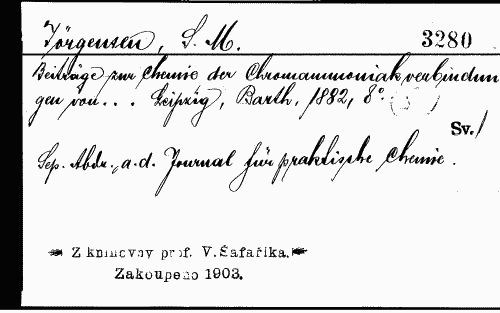 Jörgensen, S. M. 3280
Beiträge zur Chemie der Chromammoniakverbindun
gen von... Leipzig, Barth, 1882, 8°.
Sv. /
Sep. Abdr. a. d. Journal für praktische Chemie.
Z knihovny prof. V. Šafaříka.
Zakoupeno 1903.